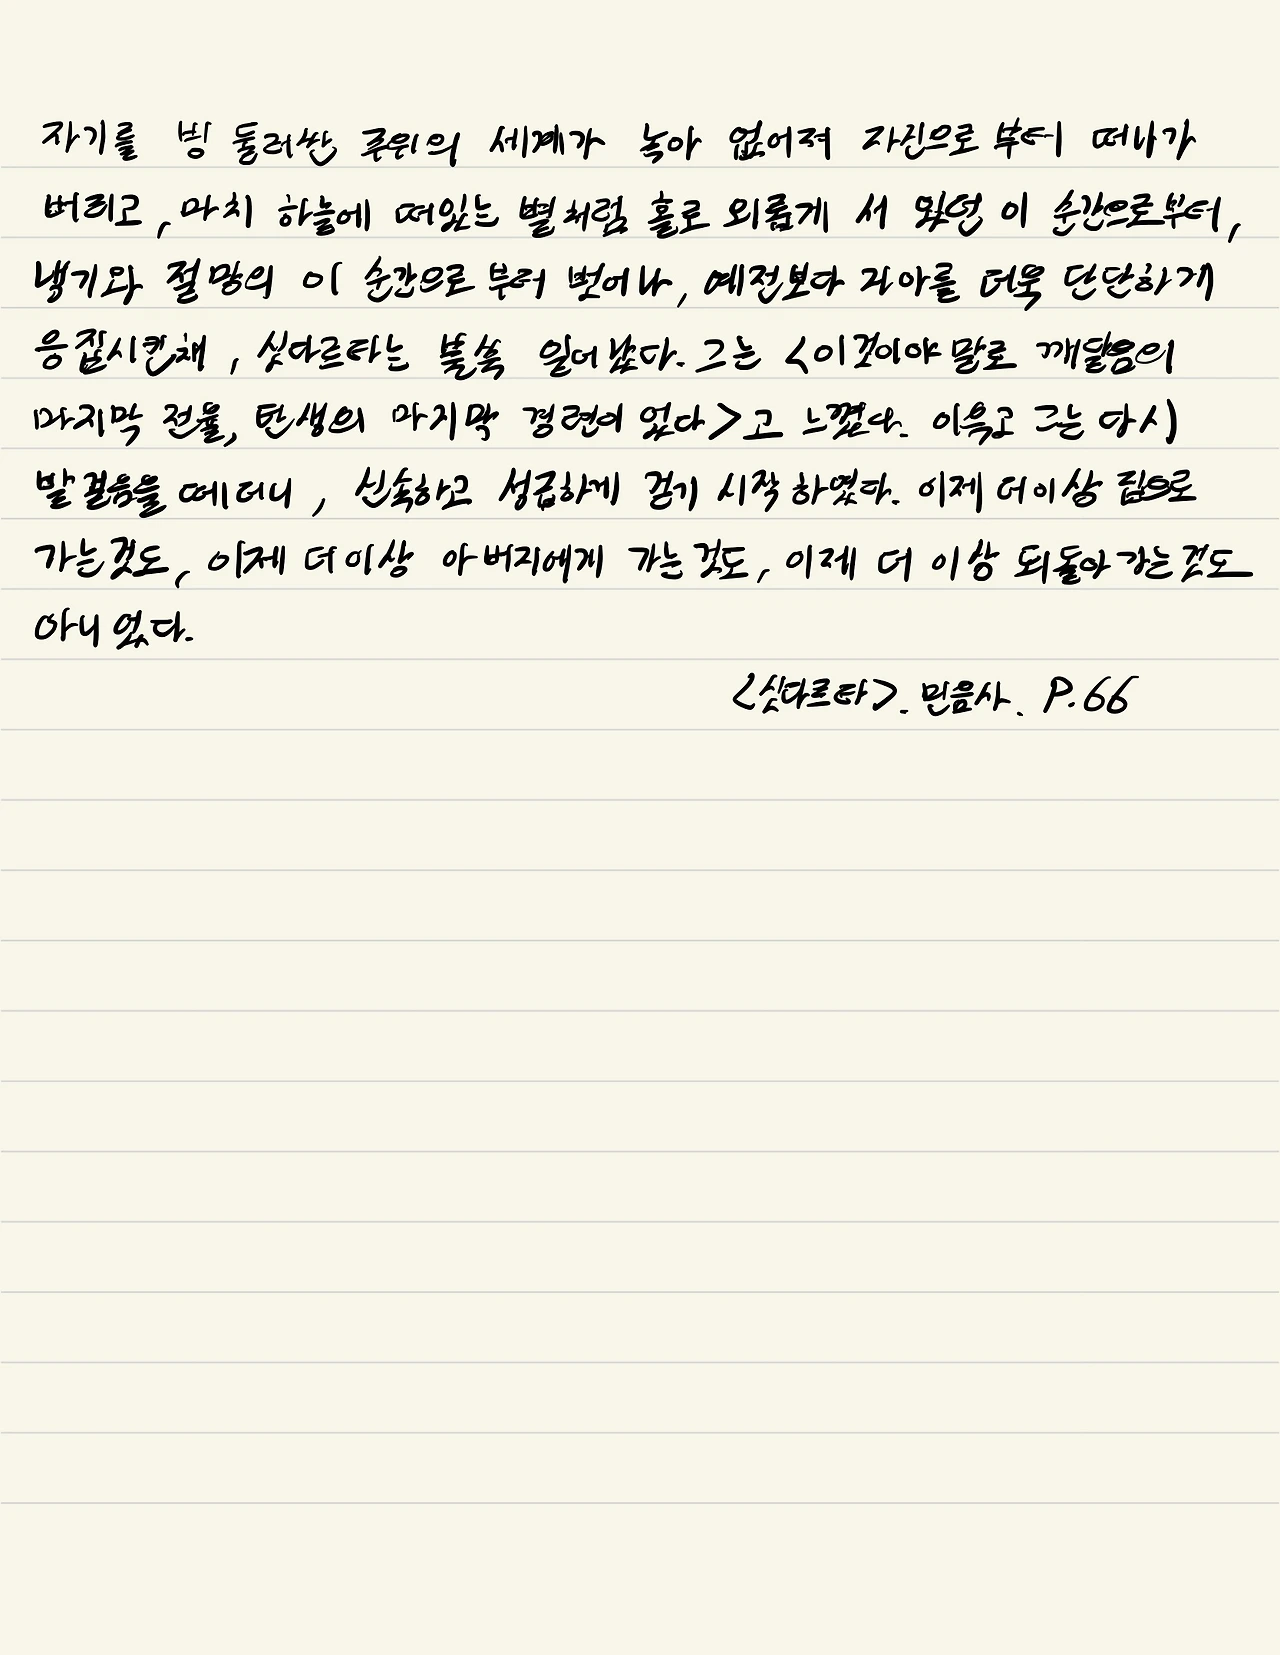 자기를 빙 둘러싼 주위의 세계가 녹아 없어져 자신으로 부터 떠나가
버리고, 마치 하늘에 떠있는 별처럼 홀로 외롭게 서 있던 이 순간으로부터,
냉기와 절망의 이 순간으로 부터 벗어나, 예전보다 자아를 더욱 단단하게
응집시킨채, 싯다르타는 불쑥 일어났다. 그는 <이것이야 말로 깨달음의
마지막 전율, 탄생의 마지막 경련이었다>고 느꼈다. 이윽고 그는 다시
발걸음을 떼더니, 신속하고 성급하게 걷기 시작 하였다. 이제 더이상 집으로
가는것도, 이제 더이상 아버지에게 가는것도, 이제 더 이상 되돌아 가는것도
아니었다.
<싯다르타>. 민음사. P.66